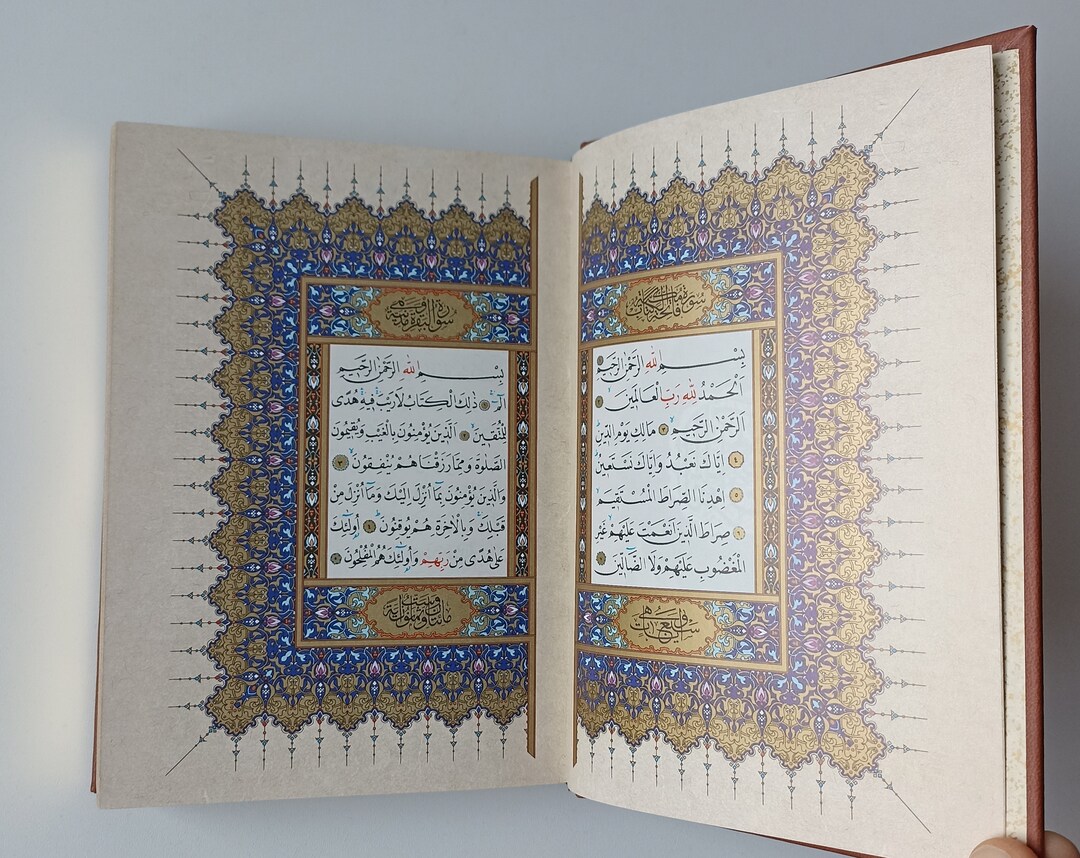 سورة فاتحة الكتاب
بِسْمِ اللهِ الرَّحْمٰنِ الرَّحِيمِ ١
اَلْحَمْدُ لِلّٰهِ رَبِّ الْعَالَمِينَ ٢
اَلرَّحْمٰنِ الرَّحِيمِ ٣ مَالِكِ يَوْمِ الدِّينِ
٤ اِيَّاكَ نَعْبُدُ وَاِيَّاكَ نَسْتَعِينُ
٥ اِهْدِنَا الصِّرَاطَ الْمُسْتَقِيمَ
٦ صِرَاطَ الَّذِينَ اَنْعَمْتَ عَلَيْهِمْ غَيْرِ
الْمَغْضُوبِ عَلَيْهِمْ وَلَا الضَّالِّينَ ٧
وهي سبع آيات
سورة البقرة مدنية
بِسْمِ اللهِ الرَّحْمٰنِ الرَّحِيمِ
الٓمٓ ١ ذٰلِكَ الْكِتَابُ لَا رَيْبَ فِيهِ هُدًى
لِلْمُتَّقِينَ ٢ اَلَّذِينَ يُؤْمِنُونَ بِالْغَيْبِ وَيُقِيمُونَ
الصَّلٰوةَ وَمِمَّا رَزَقْنَاهُمْ يُنْفِقُونَ ٣
وَالَّذِينَ يُؤْمِنُونَ بِمَٓا اُنْزِلَ اِلَيْكَ وَمَٓا اُنْزِلَ مِنْ
قَبْلِكَ وَبِالْاٰخِرَةِ هُمْ يُوقِنُونَ ٤ اُو۬لٰٓئِكَ
عَلٰى هُدًى مِنْ رَبِّهِمْ وَاُو۬لٰٓئِكَ هُمُ الْمُفْلِحُونَ ٥
مائتان وست وثمانون آية